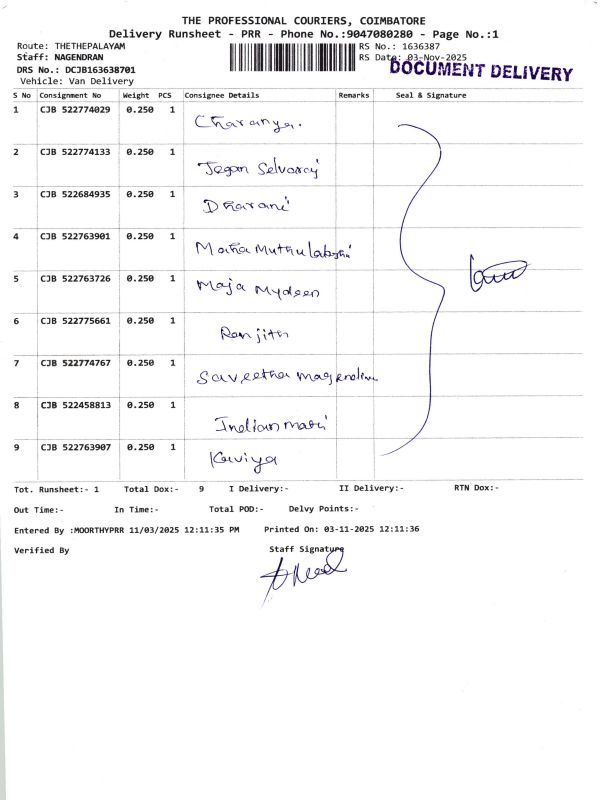 THE PROFESSIONAL COURIERS, COIMBATORE
Delivery Runsheet - PRR - Phone No.:9047080280 - Page No.:1
Route: THETHEPALAYAM RS No.: 1636387
Staff: NAGENDRAN RS Date: 03-Nov-2025
DOCUMENT DELIVERY
DRS No.: DCJB163638701
Vehicle: Van Delivery
S No Consignment No Weight PCS Consignee Details Remarks Seal & Signature
1 CJB 522774029 0.250 1 Charanya.
2 CJB 522774133 0.250 1 Jegan Selvaraj
3 CJB 522684935 0.250 1 Dharani
4 CJB 522763901 0.250 1 Maha Muthulakshi
5 CJB 522763726 0.250 1 Maja Mydeen
6 CJB 522775661 0.250 1 Ranjith
7 CJB 522774767 0.250 1 Saveetha
8 CJB 522458813 0.250 1 Indian
9 CJB 522763907 0.250 1 Kaviya
Tot. Runsheet:- 1 Total Dox:- 9 I Delivery:- II Delivery:- RTN Dox:-
Out Time:- In Time:- Total POD:- Delvy Points:-
Entered By :MOORTHYPRR 11/03/2025 12:11:35 PM Printed On: 03-11-2025 12:11:36
Verified By Staff Signature